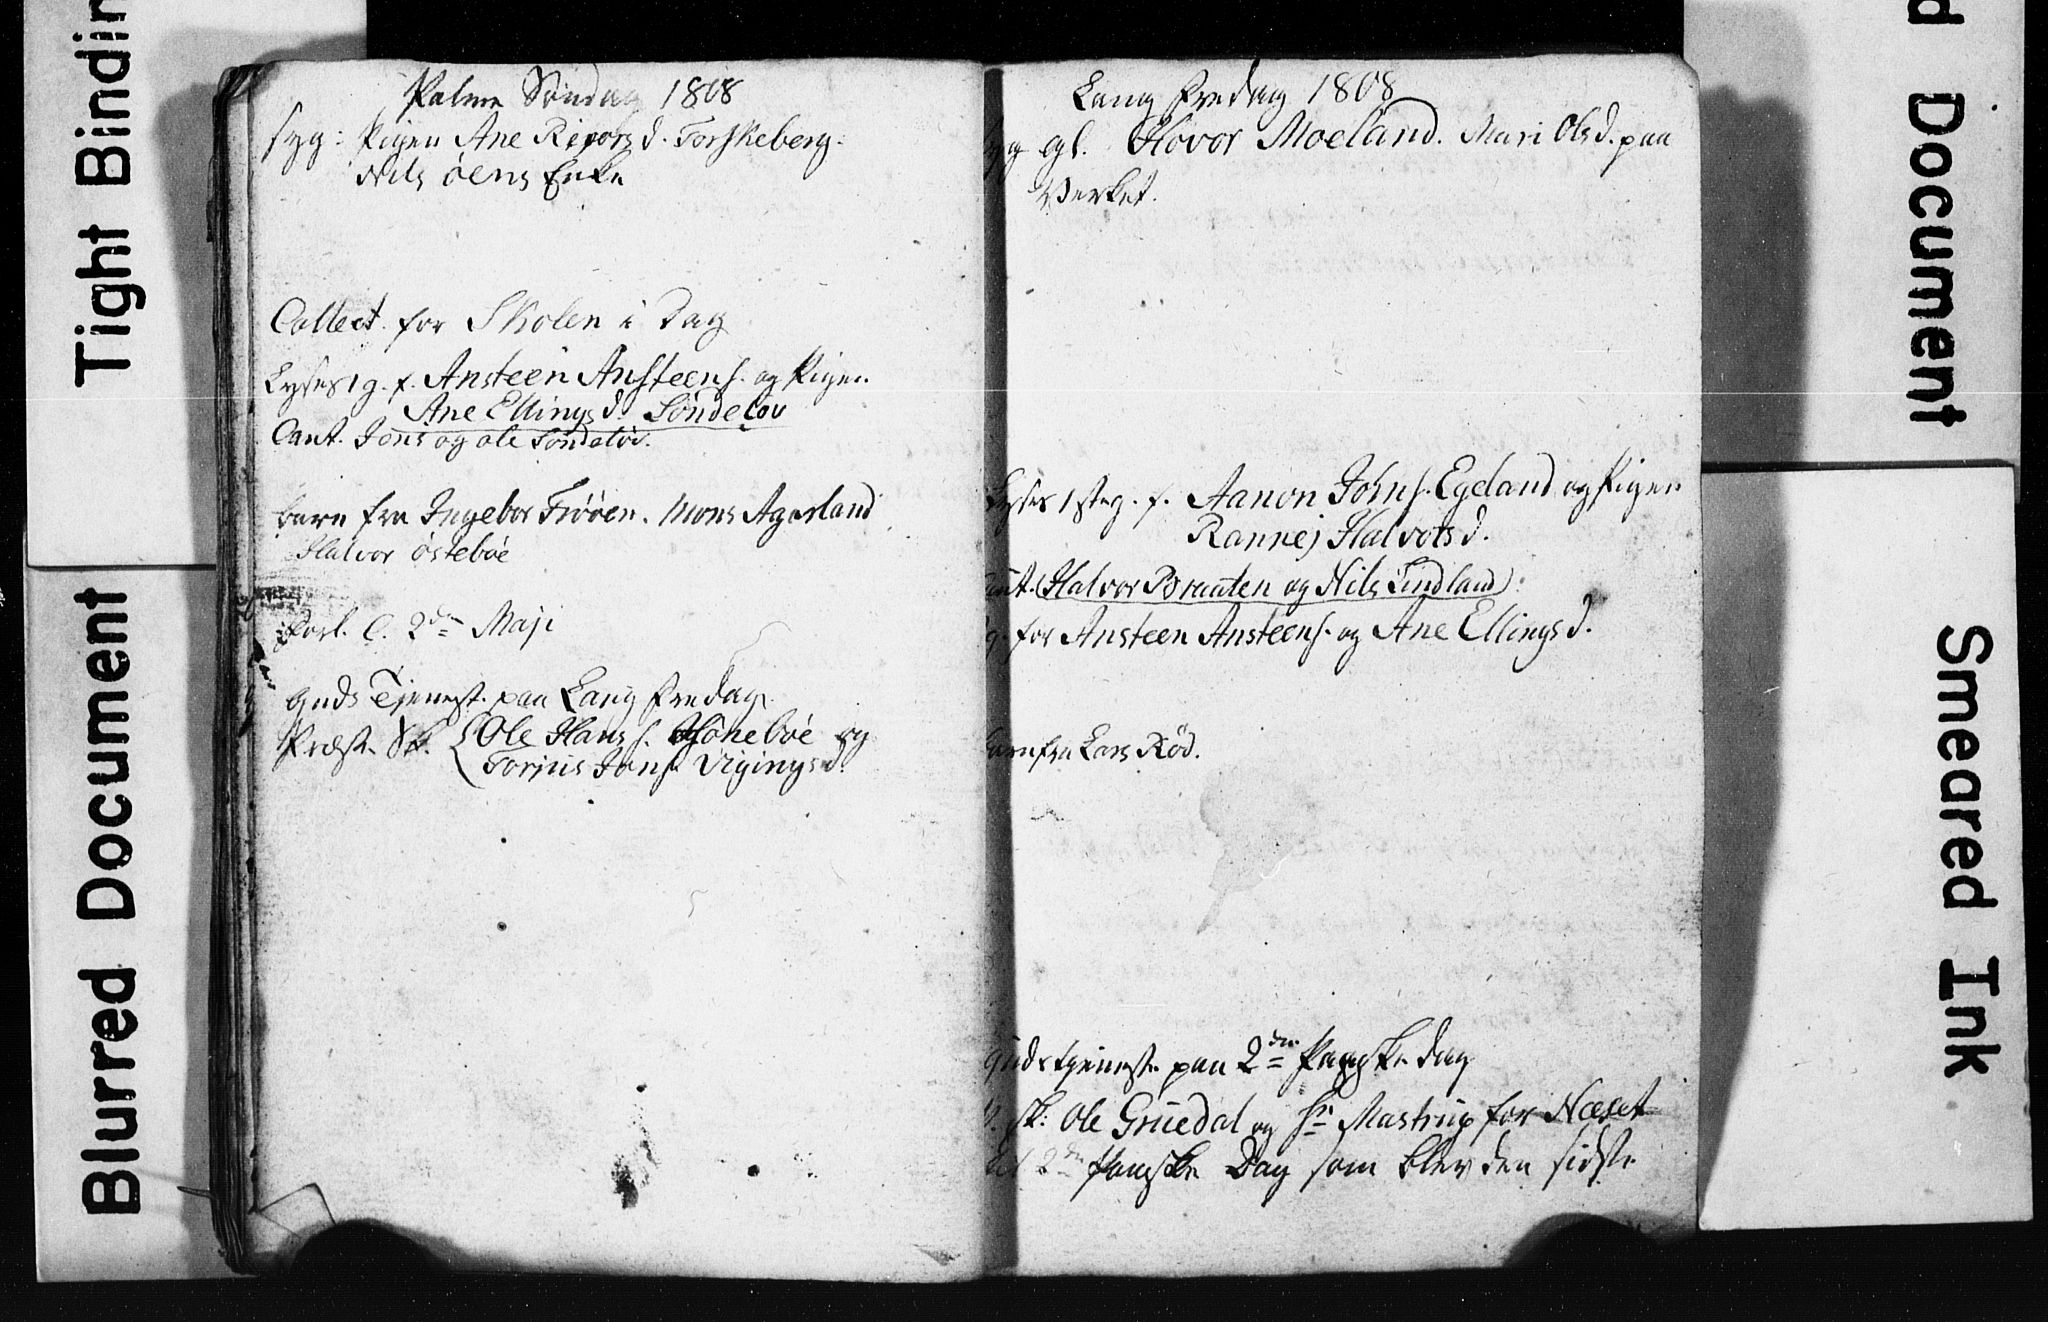 Tight Bindin
Blurred Document
Palme Søndag 1808
syg: Pigen Ane Reiorsd. Torskeberg.
Nils öens Enke
Collect for Skolen i Dag
Lyses 1 g. f. Ansteen Ansteens. og Pigen
Ane Ellingsd. Söndeløv
Caut. Jens og ole Söndeløv.
barn fra Ingebor Trøen. Mons Agerland
Halvor östeböe
C. 2den Maji
Guds Tjeneste paa Lang Fredag.
Præst. Sk. Ole Hans s. Höneböe og
Torjus Jons.
Lang Fredag 1808
syg gl. Hovor Moeland. Mari Olsd. paa
Verket.
Lyses 1ste g. f. Aanon Johns. Egeland og Pigen
Rannej Halvorsd.
Caut. (Halvor Braaten og Nils Lindland)
g. for Ansteen Ansteens. og Ane Ellingsd.
barn fra Lars Röd.
Gudstjeneste paa 2den Paaske dag
P. sk: Ole Gruedal og Hr Mastrup for Næset
2den Paaske Dag som blev den sidste
d Document
Smeared Ink